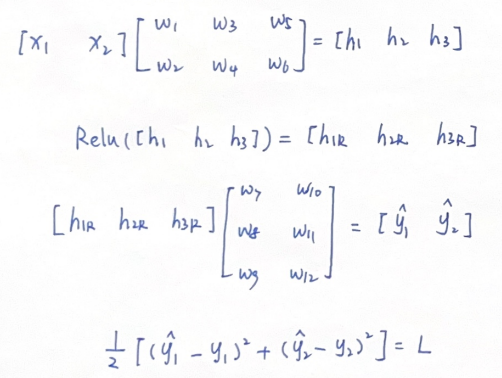 [x₁ x₂] [w₁ w₃ w₅
w₂ w₄ w₆] = [h₁ h₂ h₃]
Relu([h₁ h₂ h₃]) = [h₁R h₂R h₃R]
[h₁R h₂R h₃R] [w₇ w₁₀
w₈ w₁₁
w₉ w₁₂] = [ŷ₁ ŷ₂]
½ [(ŷ₁ - y₁)² + (ŷ₂ - y₂)²] = L